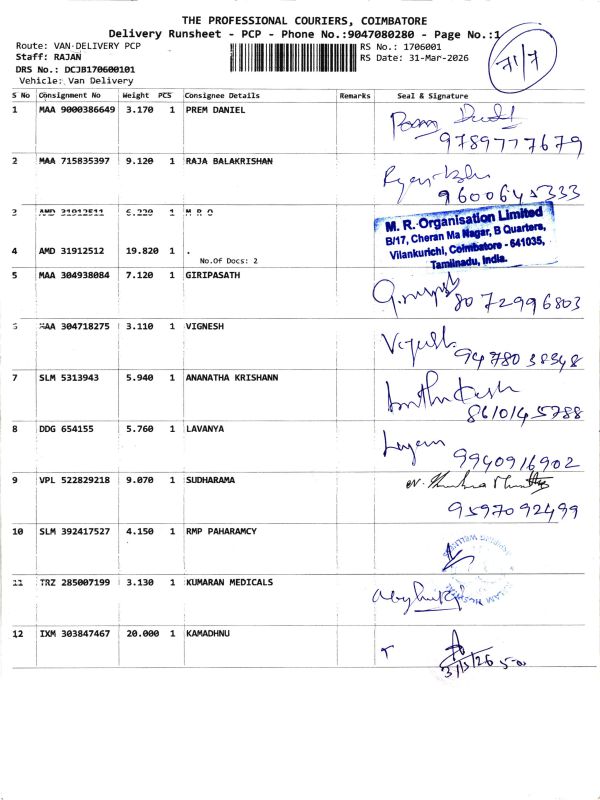 THE PROFESSIONAL COURIERS, COIMBATORE
Delivery Runsheet - PCP - Phone No.:9047080280 - Page No.:1
Route: VAN-DELIVERY PCP RS No.: 1706001
Staff: RAJAN RS Date: 31-Mar-2026
DRS No.: DCJB170600101
Vehicle: Van Delivery
S No Consignment No Weight PCS Consignee Details Remarks Seal & Signature
1 MAA 9000386649 3.170 1 PREM DANIEL
9789777679
2 MAA 715835397 9.120 1 RAJA BALAKRISHAN
9600645333
3 AMD 31912511 6.220 1 M R O
M. R. Organisation Limited
B/17, Cheran Ma Nagar, B Quarters,
Vilankurichi, Coimbatore - 641035,
Tamilnadu, India.
4 AMD 31912512 19.820 1 .
No.Of Docs: 2
5 MAA 304938084 7.120 1 GIRIPASATH
8072996803
6 MAA 304718275 3.110 1 VIGNESH
9478038348
7 SLM 5313943 5.940 1 ANANATHA KRISHANN
8610145788
8 DDG 654155 5.760 1 LAVANYA
9940916902
9 VPL 522829218 9.070 1 SUDHARAMA
9597092499
10 SLM 392417527 4.150 1 RMP PAHARAMCY
11 TRZ 285007199 3.130 1 KUMARAN MEDICALS
12 IXM 303847467 20.000 1 KAMADHNU
31/3/26